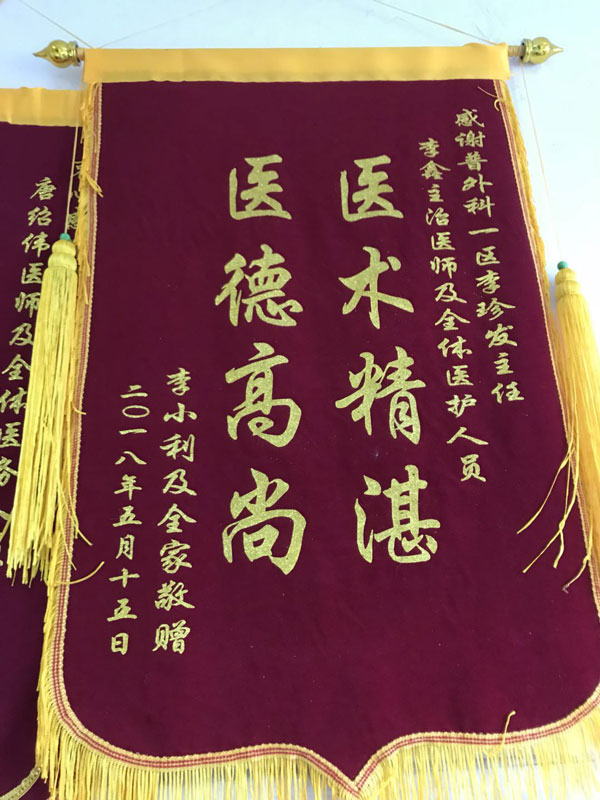 感谢普外科一区李珍发主任
李鑫主治医师及全体医护人员
医术精湛
医德高尚
李小利及全家敬赠
二〇一八年五月十五日
唐绍伟医师及全体医务